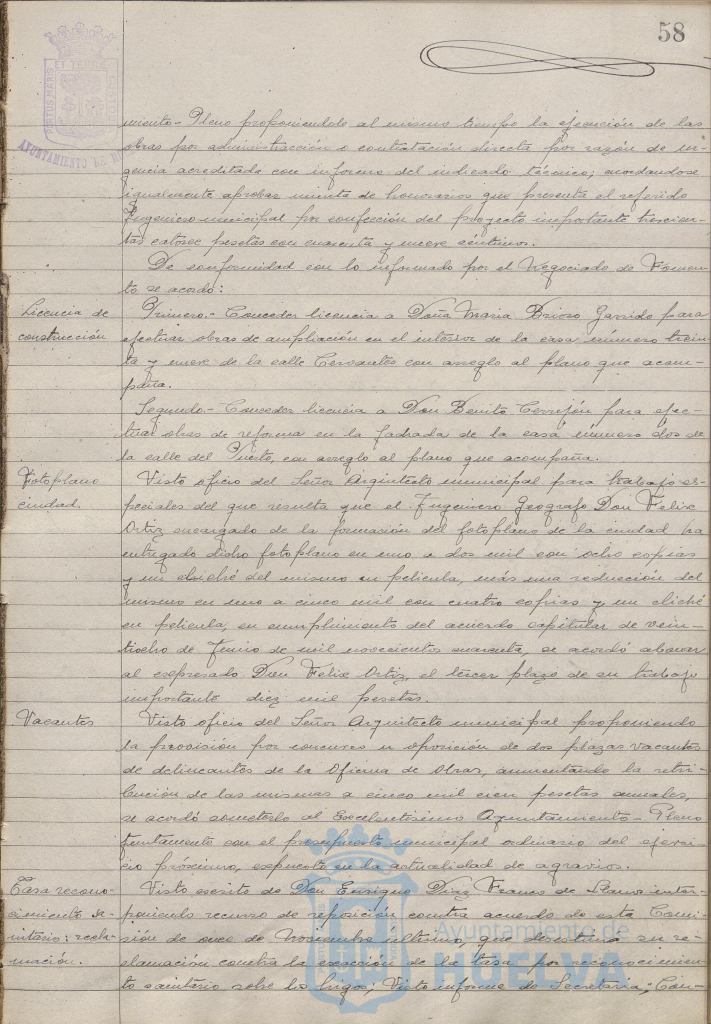 58
PORTUS MARIS ET TERRE CUSTODIA
AYUNTAMIENTO DE
miento-Pleno proponiendole al mismo tiempo la ejecución de las
obras por administracción o contratación directa por razón de ur-
gencia acreditada con informe del indicado técnico; acordandose
igualmente aprobar minuta de honorarios que presenta el referido
Ingeniero municipal por confección del proyecto importante trescien-
tas catorce pesetas con cuarenta y nueve céntimos.
De conformidad con lo informado por el Negociado de Fomen-
to se acordó:
Licencia de
construcción
Primero.- Conceder licencia a Doña Maria Brioso Garrido para
efectuar obras de ampliación en el interior de la casa número trein-
ta y nueve de la calle Cervantes con arreglo al plano que acom-
paña.
Segundo.- Conceder licencia a Don Benito Cerrejón para efec-
tuar obras de reforma en la fachada de la casa número dos de
la calle del Puerto, con arreglo al plano que acompaña.
Fotoplano
ciudad.
Visto oficio del Señor Arquitecto municipal para trabajos es-
peciales del que resulta que el Ingeniero Geografo Don Felix
Ortiz encargado de la formación del fotoplano de la ciudad ha
entregado dicho fotoplano en uno a dos mil con ocho copias
y un cliché del mismo en pelicula, más una reducción del
mismo en uno a cinco mil con cuatro copias y un cliché
en pelicula, en cumplimiento del acuerdo capitular de vein-
tiocho de Junio de mil novecientos cuarenta, se acordó abonar
al expresado Don Felix Ortiz, el tercer plazo de su trabajo
importante diez mil pesetas.
Vacantes
Visto oficio del Señor Arquitecto municipal proponiendo
la provisión por concurso u oposición de dos plazas vacantes
de delineantes de la Oficina de Obras, aumentando la retri-
bución de las mismas a cinco mil cien pesetas anuales,
se acordó someterlo al Excelentisimo Ayuntamiento-Pleno
juntamente con el presupuesto municipal ordinario del ejerci-
cio próximo, expuesto en la actualidad de agravios.
Tasa recono-
cimiento sa-
nitario: recla-
mación.
Visto escrito de Don Enrique Diaz Franco de Llanos inter-
poniendo recurso de reposición contra acuerdo de esta Comi-
sión de once de Noviembre último, que desestima su re-
clamación contra la exacción de la tasa por reconocimien-
to sanitario sobre los higos; Visto informe de Secretaria; Con-
Ayuntamiento de
HUELVA